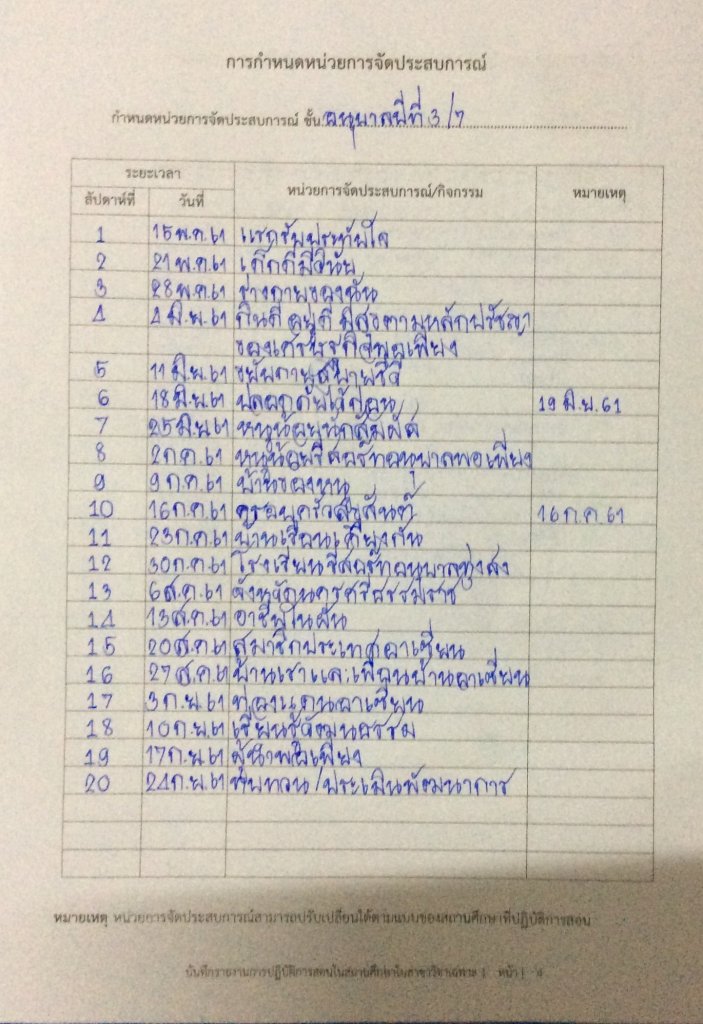 การกำหนดหน่วยการจัดประสบการณ์
กำหนดหน่วยการจัดประสบการณ์ ชั้น อนุบาลปีที่ 3/7
ระยะเวลา หน่วยการจัดประสบการณ์/กิจกรรม หมายเหตุ
สัปดาห์ที่ วันที่
1 15 พ.ค 61 แรกรับประทับใจ
2 21 พ.ค 61 เด็กดีมีวินัย
3 28 พ.ค 61 ร่างกายของฉัน
4 4 มิ.ย. 61 กินดี อยู่ดี มีสุขตามหลักปรัชญา
ของเศรษฐกิจพอเพียง
5 11 มิ.ย. 61 ขยับกายสบายชีวี
6 18 มิ.ย. 61 ปลอดภัยไว้ก่อน 19 มิ.ย. 61
7 25 มิ.ย 61 หนูน้อยนักสัมผัส
8 2 ก.ค. 61 หนูน้อยรีสอร์ทอนุบาลพอเพียง
9 9 ก.ค 61 บ้านของหนู
10 16 ก.ค 61 ครอบครัวสุขสันต์ 16 ก.ค. 61
11 23 ก.ค 61 บ้านเรือนเคียงกัน
12 30 ก.ค 61 โรงเรียนรีสอร์ทอนุบาลทุ่งสง
13 6 ส.ค. 61 จังหวัดนครศรีธรรมราช
14 13 ส.ค. 61 อาชีพในฝัน
15 20 ส.ค 61 สมาชิกประเทศอาเซียน
16 27 ส.ค 61 บ้านเราและเพื่อนบ้านอาเซียน
17 3 ก.ย. 61 ท่องแดนอาเซียน
18 10 ก.ย. 61 เรียนรู้วัฒนธรรม
19 17 ก.ย. 61 ผู้นำพอเพียง
20 24 ก.ย. 61 ทบทวน/ประเมินพัฒนาการ
หมายเหตุ หน่วยการจัดประสบการณ์สามารถปรับเปลี่ยนได้ตามแบบของสถานศึกษาที่ปฏิบัติการสอน
บันทึกรายงานการปฏิบัติการสอนในสถานศึกษาในสาขาวิชาเฉพาะ | หน้า |